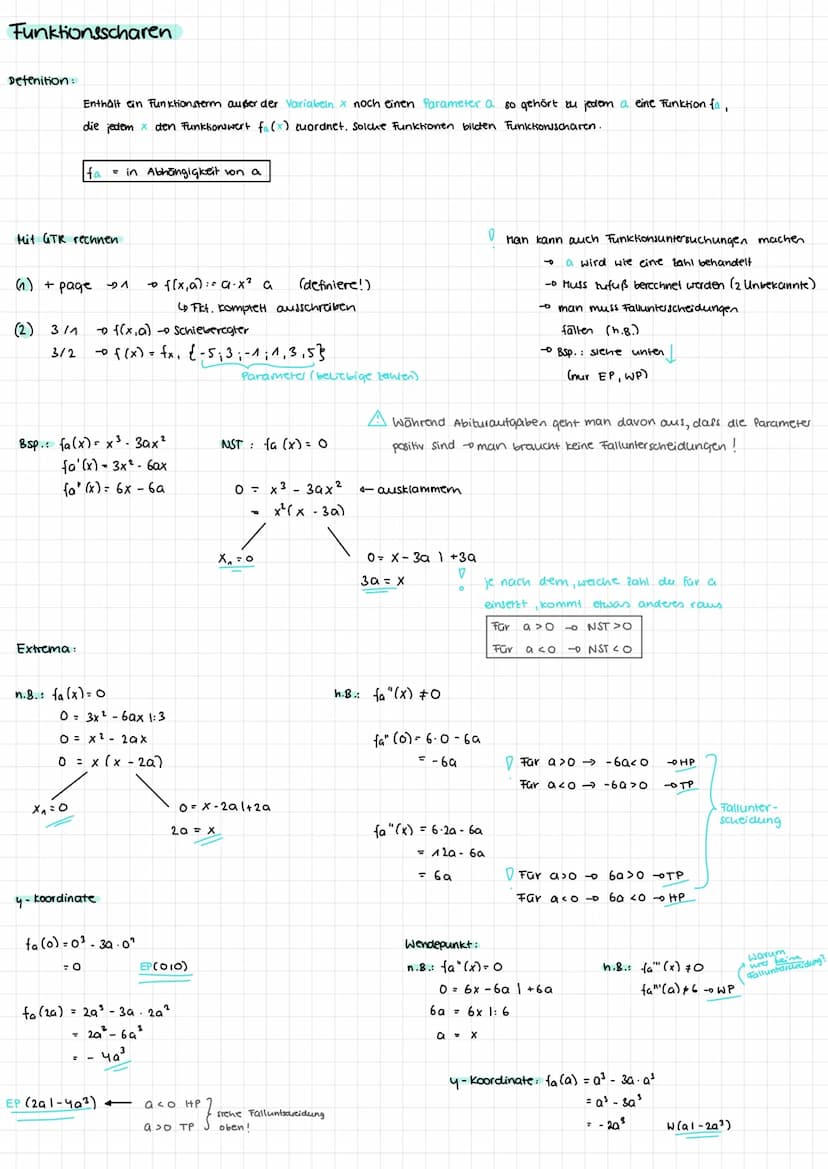 Funktionsscharen
Defenition:
Enthält ein Funktionsterm außer der Variabeln x noch einen Parameter a so gehört zu jedem a eine Funktion fa,
die jedem x den Funktionswert fa(x) zuordnet. Solche Funktionen bilden Funktionsscharen.
fa = in Abhängigkeit von a
Mit GTR rechnen
(1) + page →1 → f(x,a):= a·x² a (definiere!)
↳ Fkt. komplett ausschreiben
(2) 3/1 → f(x,a) → Schieberegler
3/2 → f(x) = fx, {-5;3;-1;1,3,5}
Parameter (beliebige Zahlen)
! Man kann auch Funktionsuntersuchungen machen
→ a wird wie eine Zahl behandelt
→ Muss zufuß berechnet werden (2 Unbekannte)
→ man muss Fallunterscheidungen
fällen (h.B.)
→ Bsp.: siehe unten ↓
(nur EP, WP)
⚠ Während Abituraufgaben geht man davon aus, dass die Parameter
positiv sind → man braucht keine Fallunterscheidungen!
Bsp.: fa(x) = x³ - 3ax²
fa'(x) = 3x² - 6ax
fa''(x) = 6x - 6a
NST: fa(x) = 0
0 = x³ - 3ax² ← ausklammern
= x²(x - 3a)
x₁ = 0
0 = x - 3a | +3a
3a = x
! je nach dem, welche Zahl du für a
einsetzt, kommt etwas anderes raus
Für a > 0 → NST > 0
Für a < 0 → NST < 0
Extrema:
n.B.: fa(x) = 0
0 = 3x² - 6ax |:3
0 = x² - 2ax
0 = x(x - 2a)
x₁ = 0
0 = x - 2a | +2a
2a = x
h.B.: fa"(x) ≠ 0
fa"(0) = 6·0 - 6a
= -6a
! Für a>0 → -6a<0 → HP
Für a<0 → -6a>0 → TP
fa"(x) = 6·2a - 6a
= 12a - 6a
= 6a
! Für a>0 → 6a>0 → TP
Für a<0 → 6a<0 → HP
Fallunter-
scheidung
y-Koordinate
fa(0) = 0³ - 3a·0²
= 0
EP(0|0)
fa(2a) = 2a³ - 3a·2a²
= 2a³ - 6a³
= -4a³
EP(2a|-4a³) ← a<0 HP
a>0 TP
siehe Fallunterscheidung
oben!
Wendepunkt:
n.B.: fa"(x) = 0
0 = 6x - 6a | +6a
6a = 6x |:6
a = x
h.B.: fa'''(x) ≠ 0
fa'''(a) ≠ 6 → WP
Warum
hier keine
Fallunterscheidung?
y-Koordinate: fa(a) = a³ - 3a·a²
= a³ - 3a³
= -2a³
W(a|-2a³)